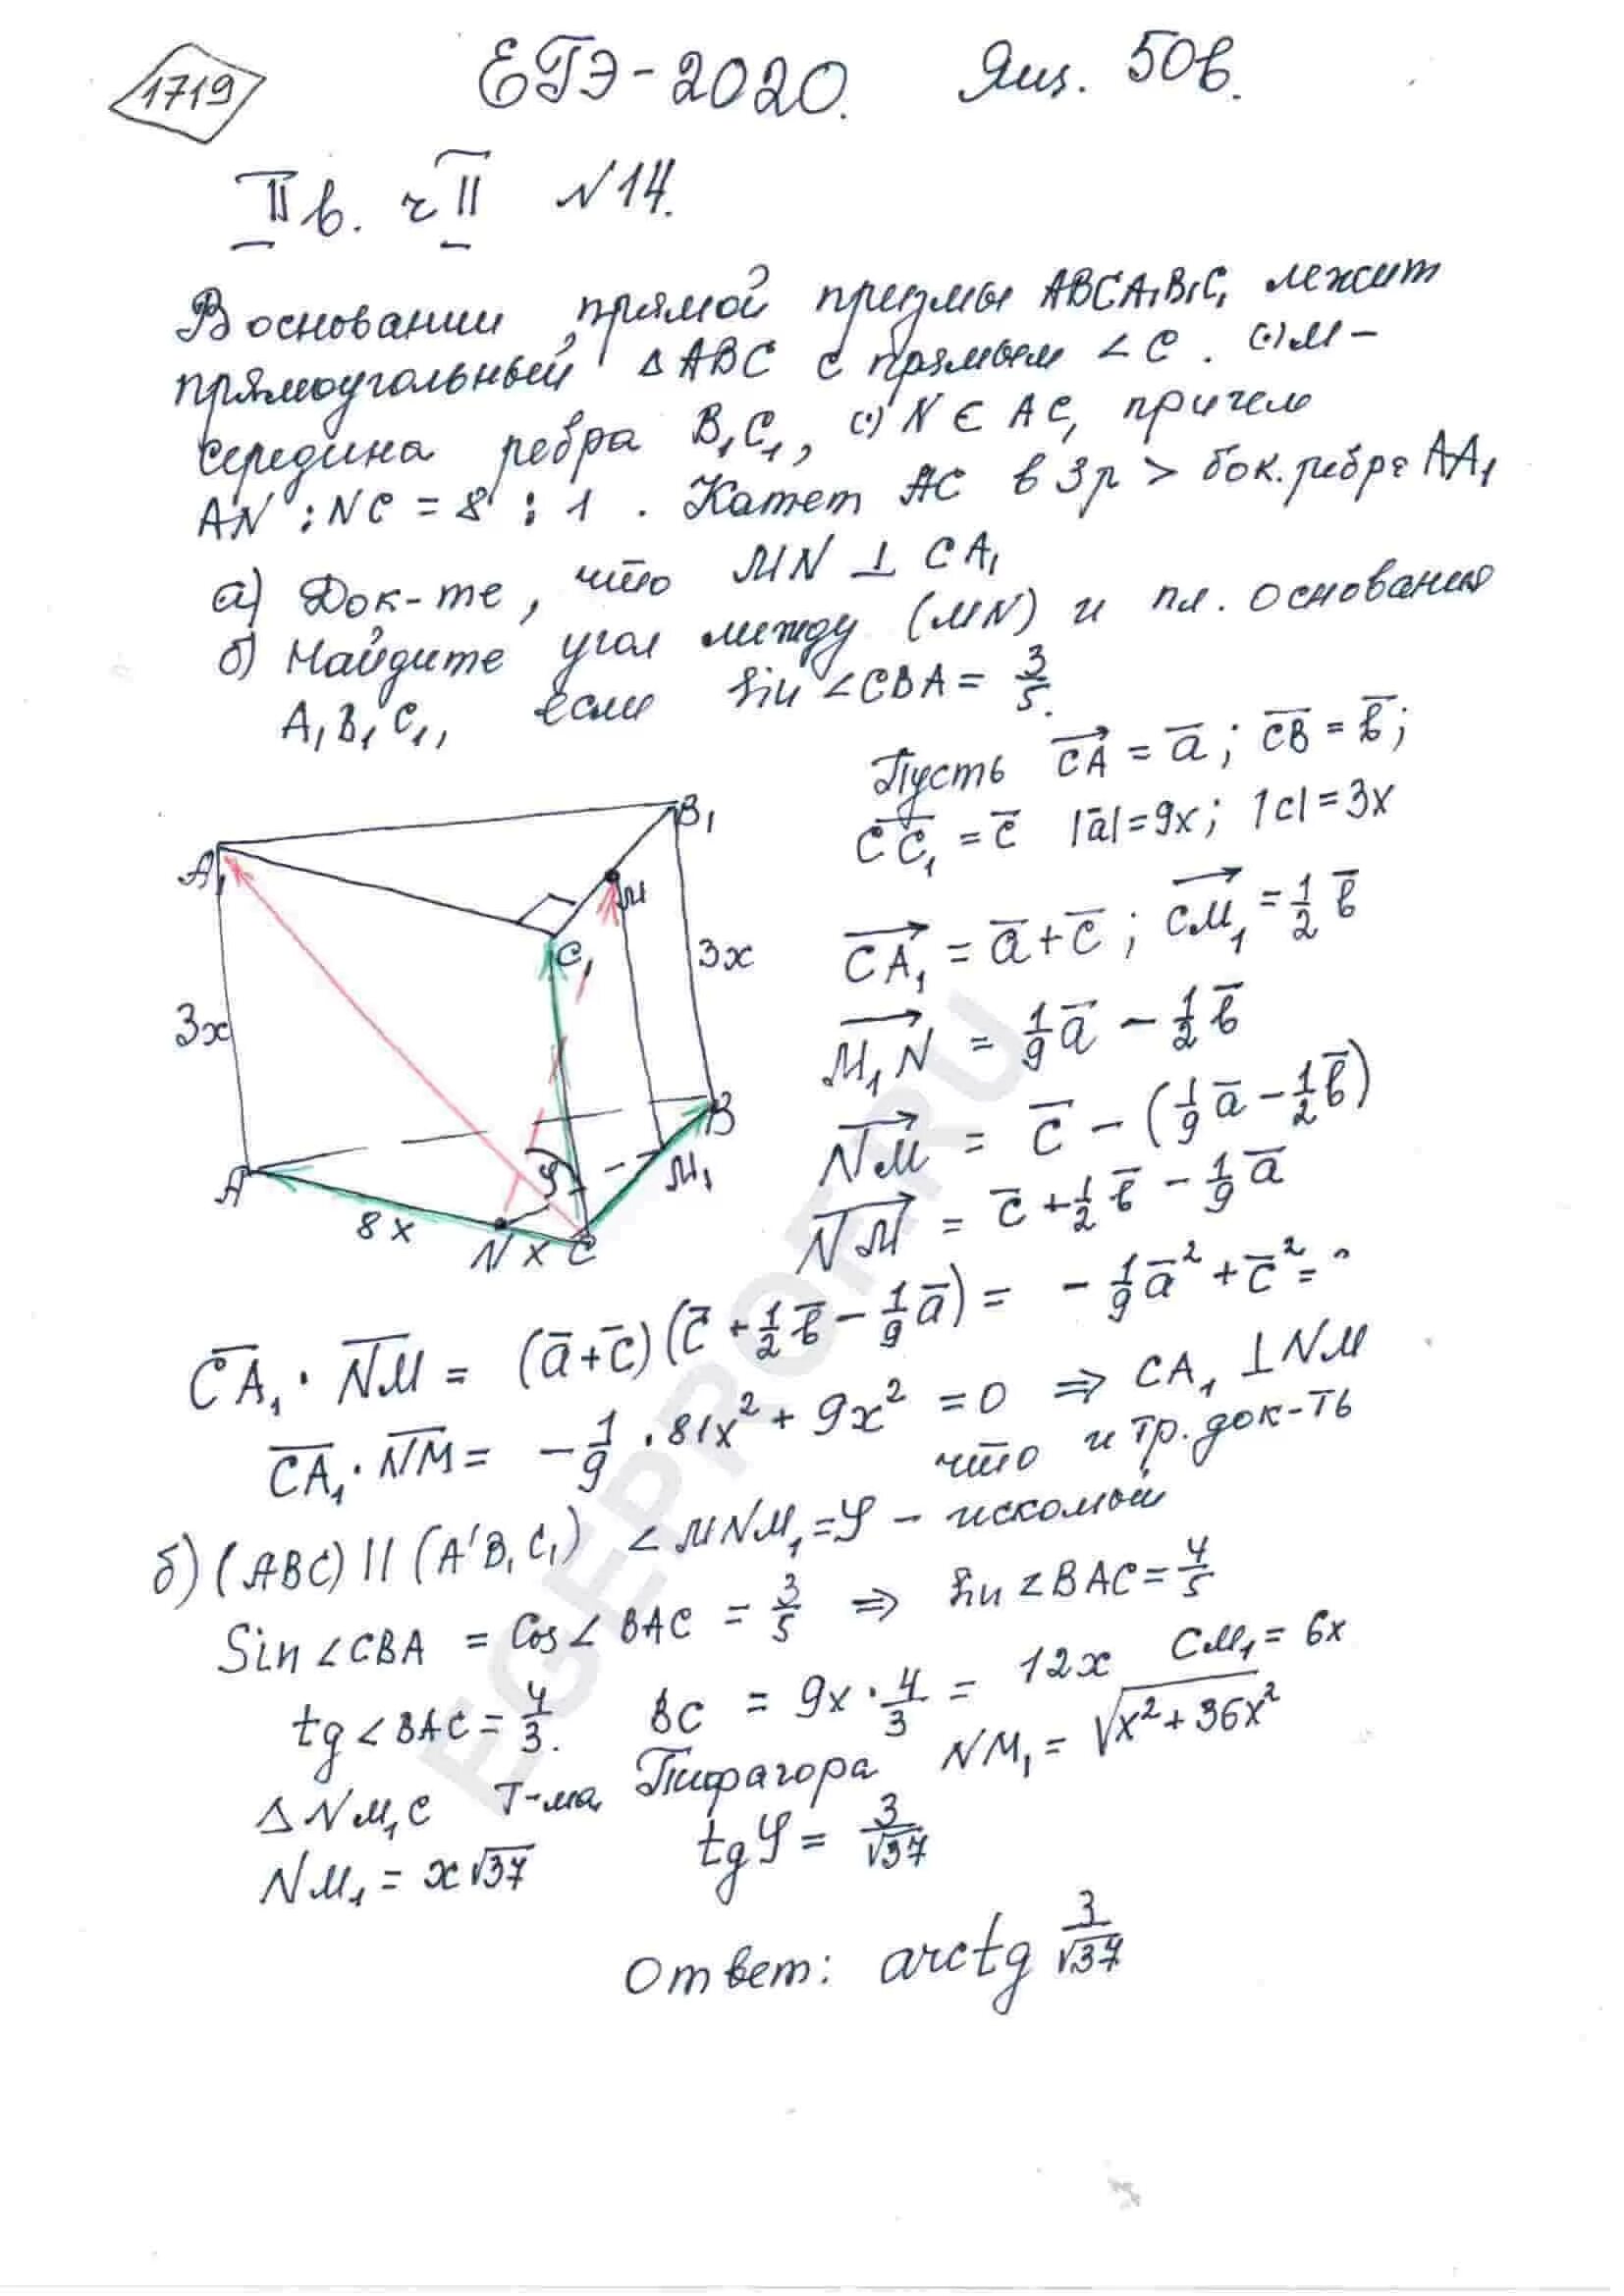 1719
ЕГЭ-2020. Ящ. 50в.
II в. ч II №14.
В основании прямой призмы ABCA₁B₁C₁ лежит
прямоугольный △ABC с прямым ∠C. (·)M –
середина ребра B₁C₁, (·)N ∈ AC, причем
AN : NC = 8 : 1. Катет AC в 3р > бок. ребра AA₁
а) Док-те, что MN ⊥ CA₁
б) Найдите угол между (MN) и пл. основания
A₁B₁C₁, если sin ∠CBA = 3/5.
Пусть CA = a; CB = b;
CC₁ = c |a| = 9x; |c| = 3x
CA₁ = a + c; CM₁ = 1/2 b
M₁N = 1/9 a − 1/2 b
NM = c − (1/9 a − 1/2 b)
NM = c + 1/2 b − 1/9 a
A₁
B₁
M
C₁
3x
3x
A
B
M₁
φ
8x
N
x
C
CA₁ · NM = (a + c)(c + 1/2 b − 1/9 a) = − 1/9 a² + c² =
CA₁ · NM = − 1/9 · 81x² + 9x² = 0 ⇒ CA₁ ⊥ NM
что и тр. док-ть
б) (ABC) || (A'B₁C₁) ∠MNM₁ = φ – искомый
Sin ∠CBA = Cos ∠BAC = 3/5 ⇒ sin ∠BAC = 4/5
tg ∠BAC = 4/3. BC = 9x · 4/3 = 12x CM₁ = 6x
△NM₁C Т-ма Пифагора NM₁ = √(x² + 36x²)
NM₁ = x√37 tg φ = 3/√37
Ответ: arctg 3/√37
EGEPROF.RU